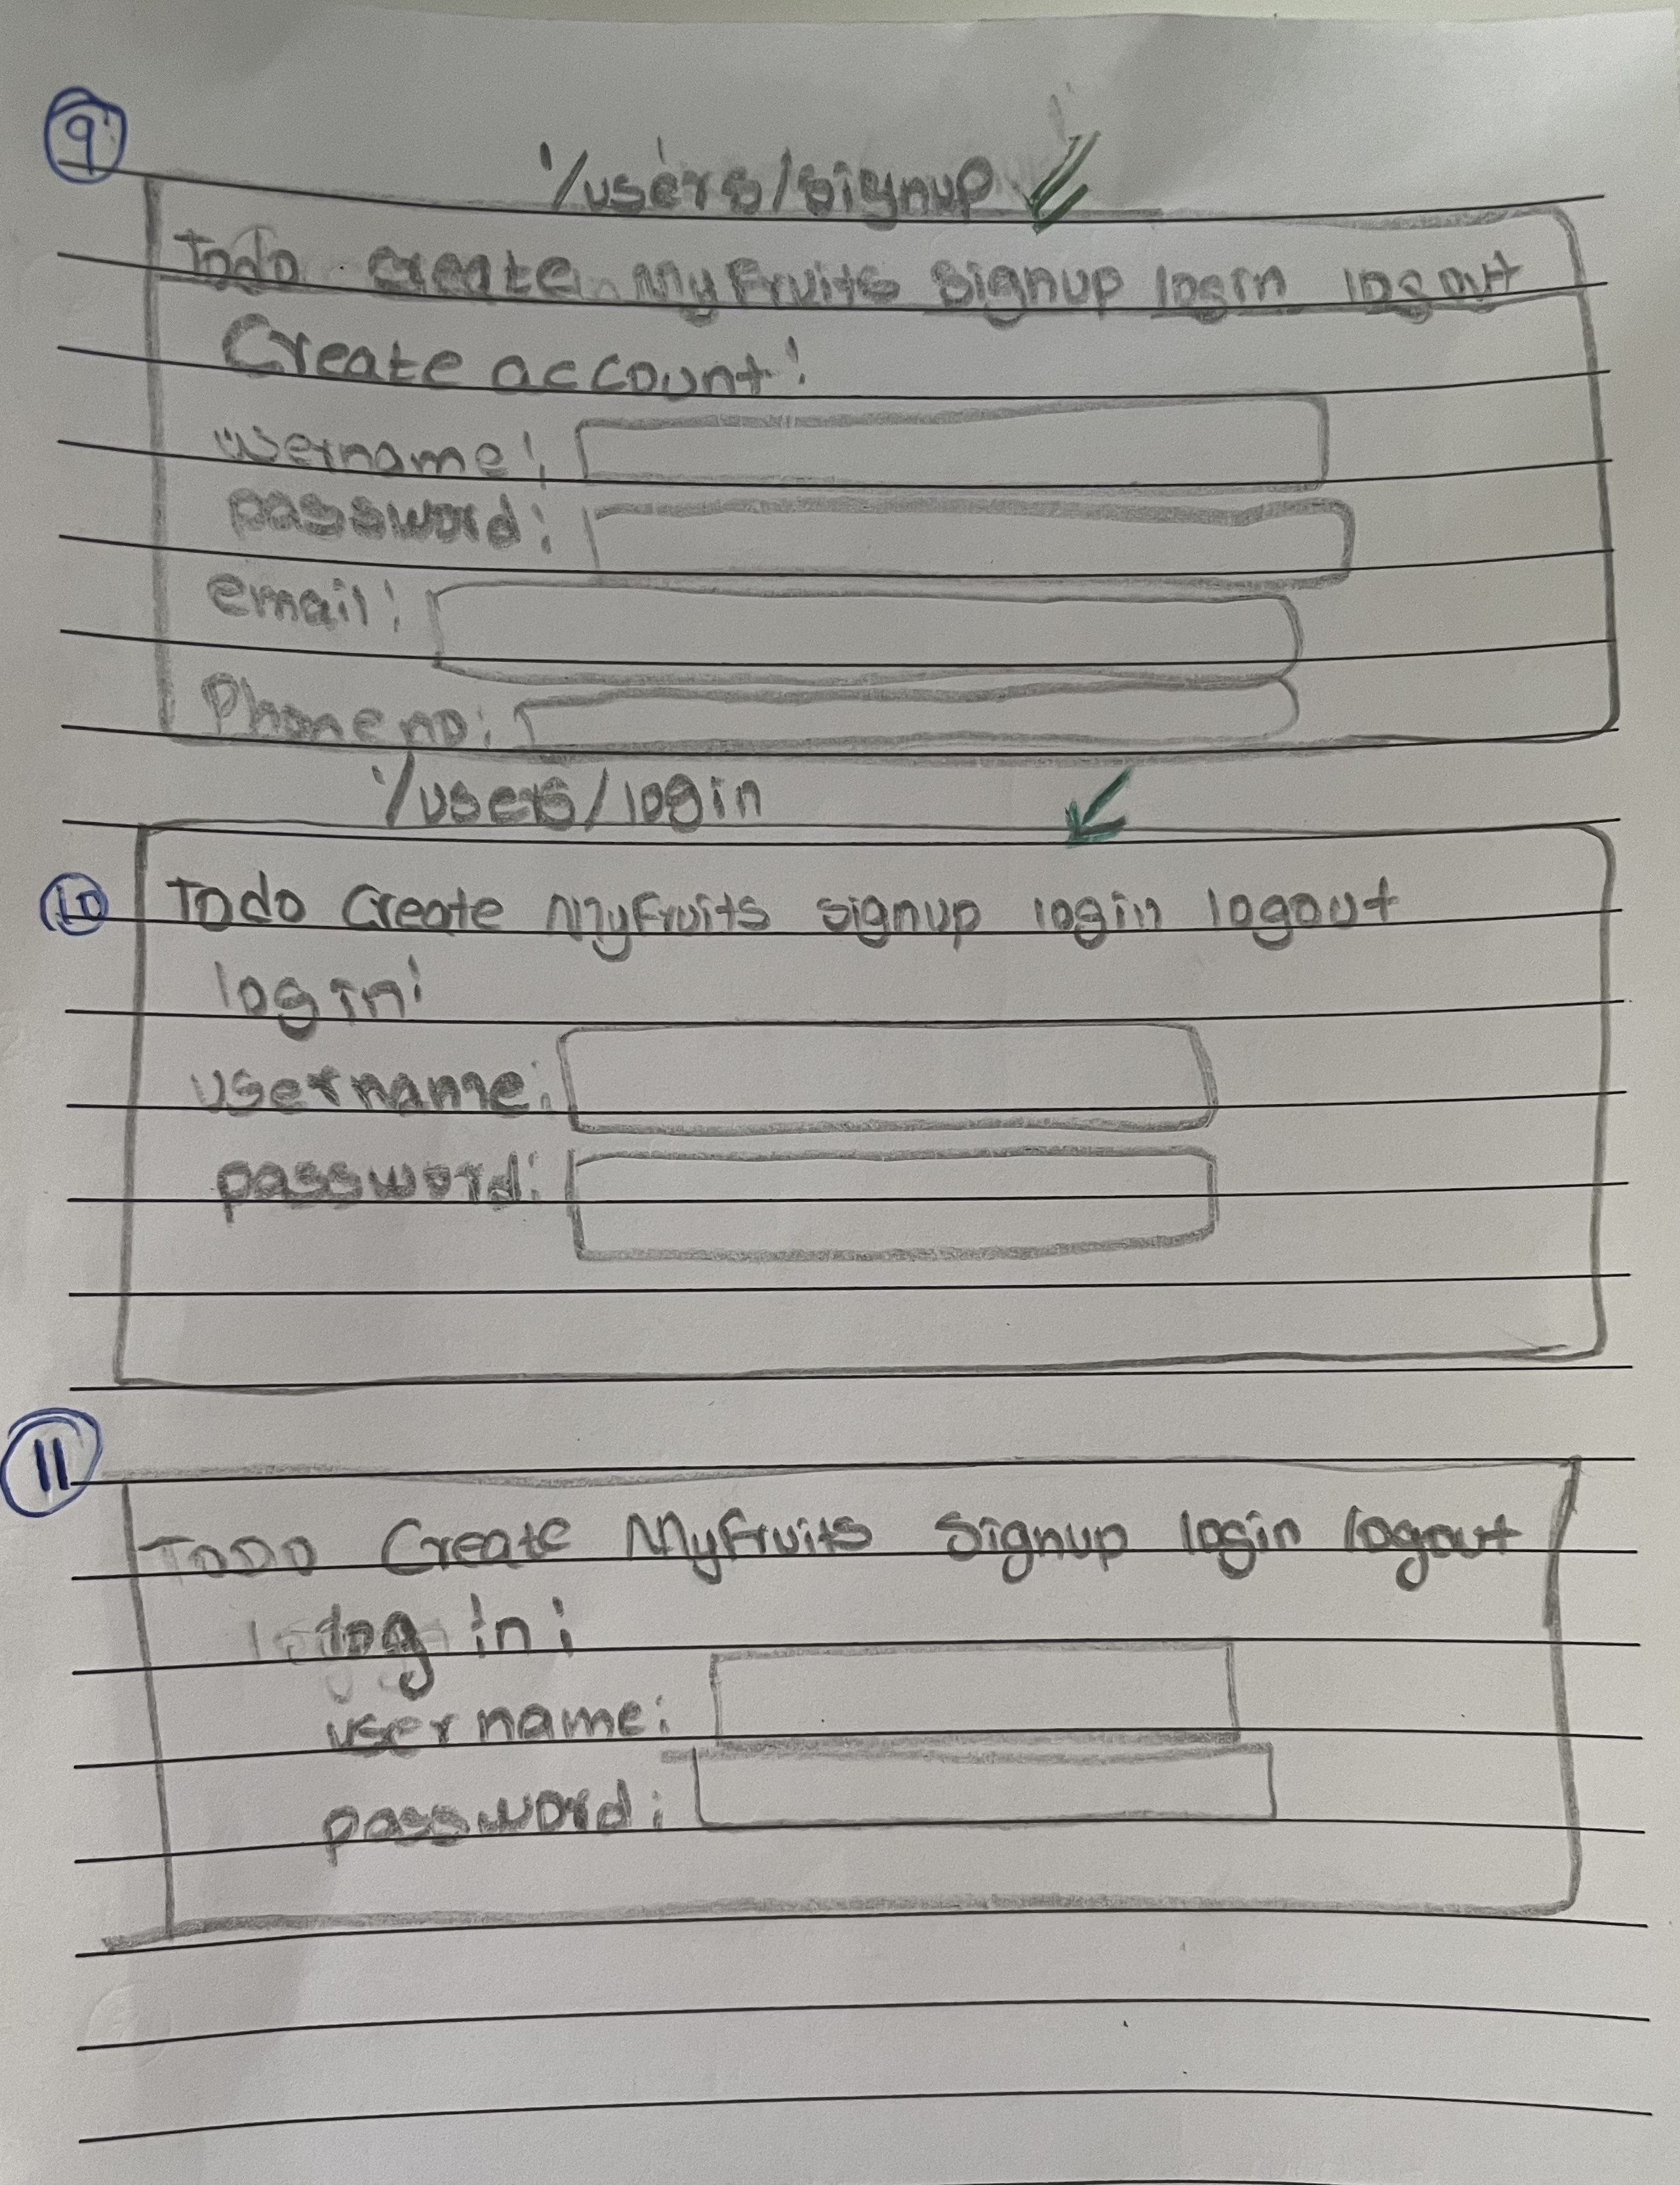 9
'/users/signup
Todo create MyFruits signup login logout
Create account:
username:
password:
email:
Phone no:
'/users/login
10
Todo Create MyFruits signup login logout
log in:
username:
password:
11
TODO Create MyFruits Signup login logout
log in:
username:
password: